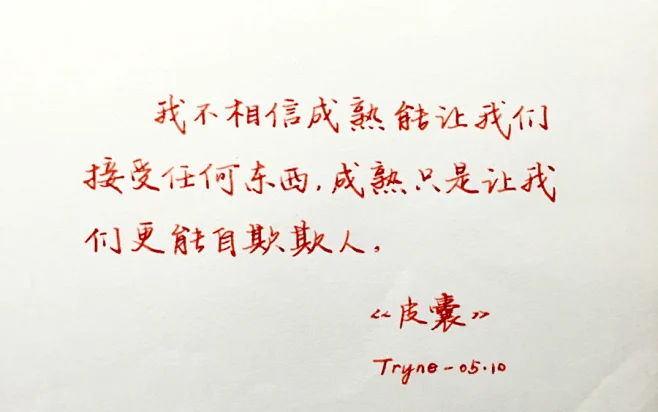 我不相信成熟能让我们
接受任何东西,成熟只是让我
们更能自欺欺人。
《皮囊》
Tryne-05.10